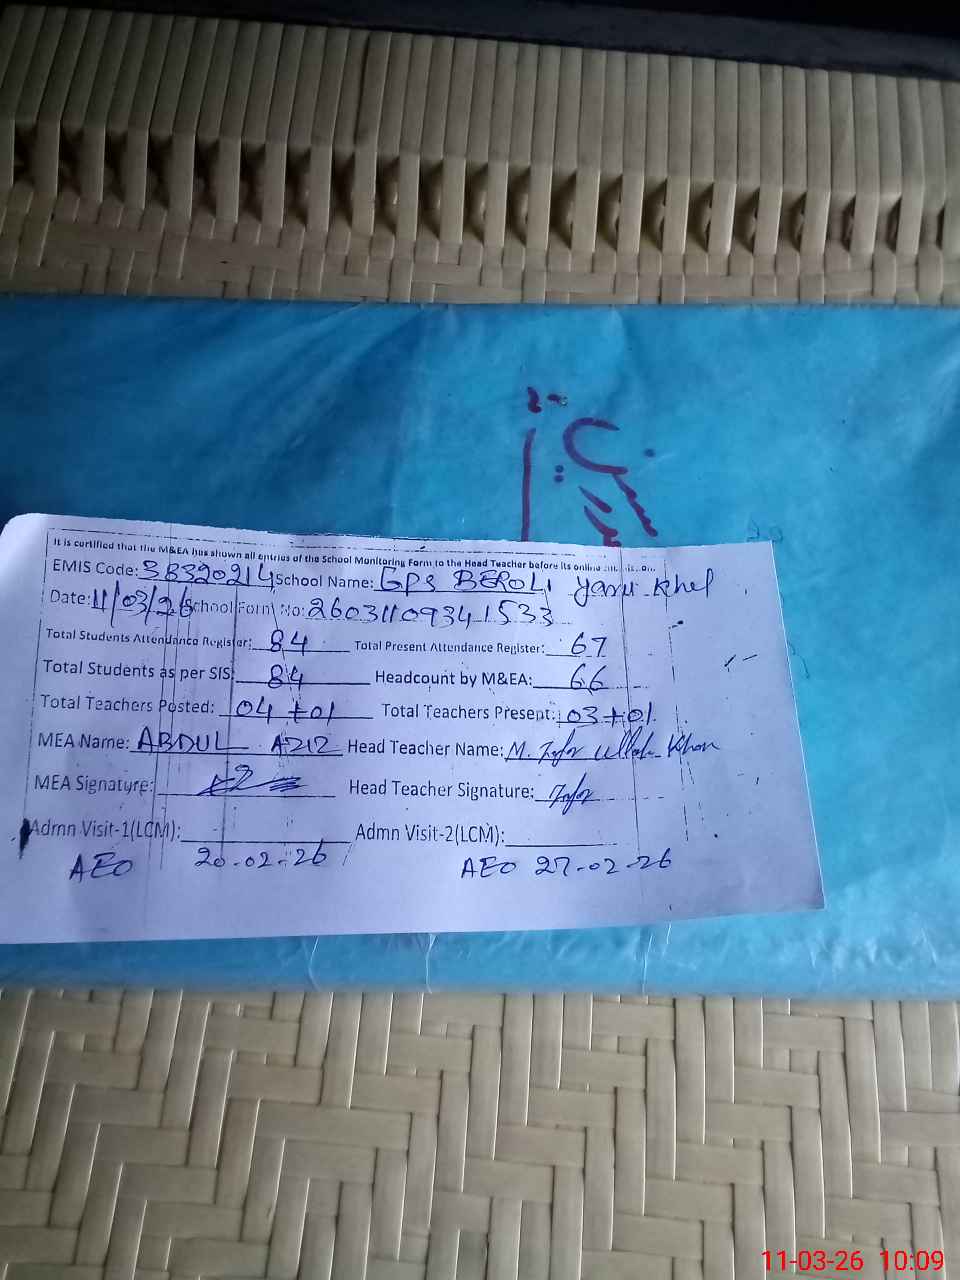 It is certified that the M&EA has shown all entries of the School Monitoring Form to the Head Teacher before its online
EMIS Code: 38320214 School Name: GPS BEROLI Yaru Khel
Date: 11/03/26 School Form No: 26031109341533
Total Students Attendance Register: 84 Total Present Attendance Register: 67
Total Students as per SIS: 84 Headcount by M&EA: 66
Total Teachers Posted: 04+01 Total Teachers Present: 03+01
MEA Name: ABDUL AZIZ Head Teacher Name: M. Zafar Ullah Khan
MEA Signature: Head Teacher Signature: Zafar
Admn Visit-1(LCM): Admn Visit-2(LCM):
AEO 20-02-26 AEO 27-02-26
11-03-26 10:09